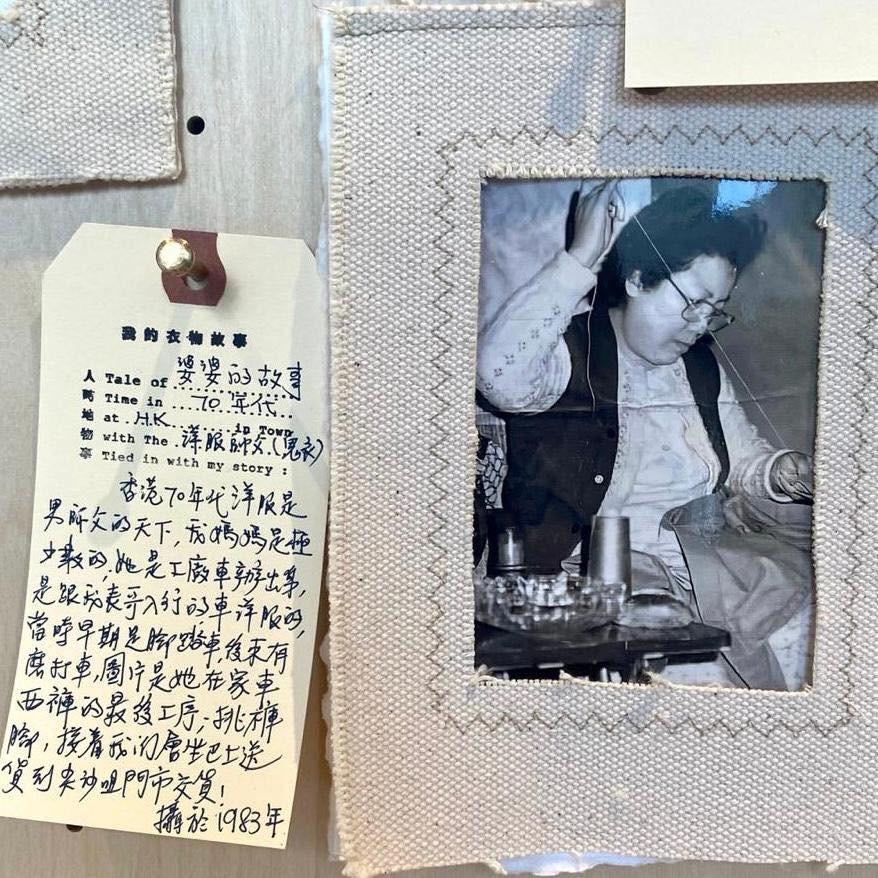 我的衣物故事
人 Tale of 婆婆的故事
時 Time in 70年代
地 at H.K in Town
物 with The 洋服師父(見衣)
亭 Tied in with my story :
香港70年代洋服是
男師父的天下,我媽媽是極
少數的,她是工廠車辦出來,
是跟我表哥入行的車洋服的,
當時早期是腳踏車,後來有
磨打車,圖片是她在家車
西褲的最後工序,挑褲
腳,接着我們會坐巴士送
貨到尖沙咀門市交貨!
攝於1983年